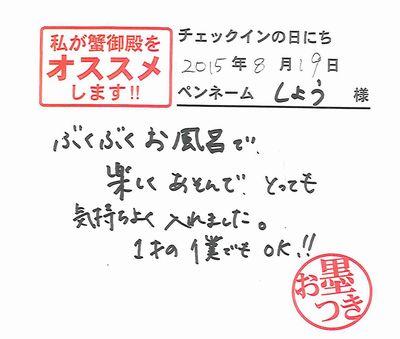 私が蟹御殿を
オススメ
します!!
チェックインの日にち
2015年8月19日
ペンネーム しょう 様
ぶくぶくお風呂で、
楽しくあそんで、とっても
気持ちよく入れました。
1才の僕でもOK!!
お墨
つき